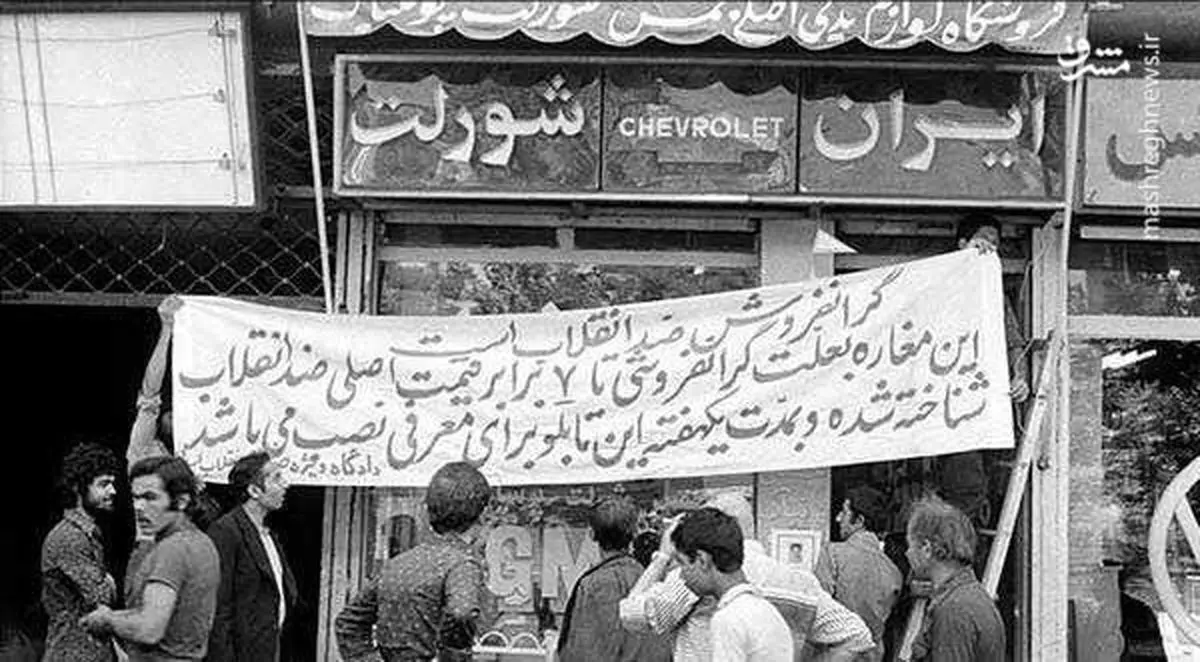 فروشگاه لوازم یدکی اصلی
ایران
CHEVROLET
شورلت
مشرق
mashreghnews.ir
گرانفروش ضد انقلاب است
این مغازه بعلت گرانفروشی تا ۷ برابر قیمت اصلی ضد انقلاب
شناخته شده و بمدّت یکهفته این تابلو برای معرفی نصب می باشد
دادگاه ویژه
GM